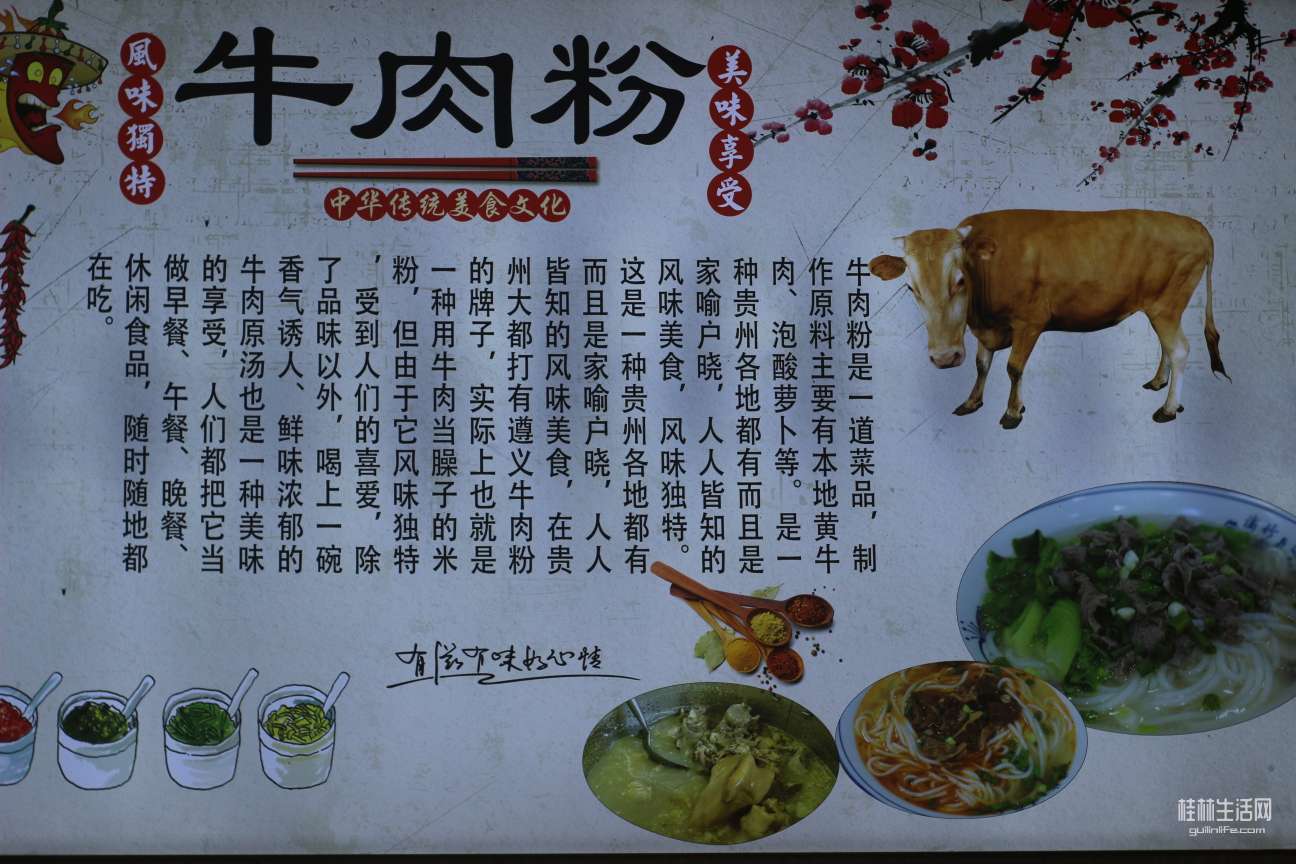 風味獨特
牛肉粉
美味享受
中华传统美食文化
牛肉粉是一道菜品，制
作原料主要有本地黄牛
肉、泡酸萝卜等。是一
种贵州各地都有而且是
家喻户晓，人人皆知的
风味美食，风味独特。
这是一种贵州各地都有
而且是家喻户晓，人人
皆知的风味美食，在贵
州大都打有遵义牛肉粉
的牌子，实际上也就是
一种用牛肉当臊子的米
粉，但由于它风味独特
，受到人们的喜爱，除
了品味以外，喝上一碗
香气诱人、鲜味浓郁的
牛肉原汤也是一种美味
的享受，人们都把它当
做早餐、午餐、晚餐、
休闲食品，随时随地都
在吃。
有滋有味好心情
桂林生活网
guilinlife.com